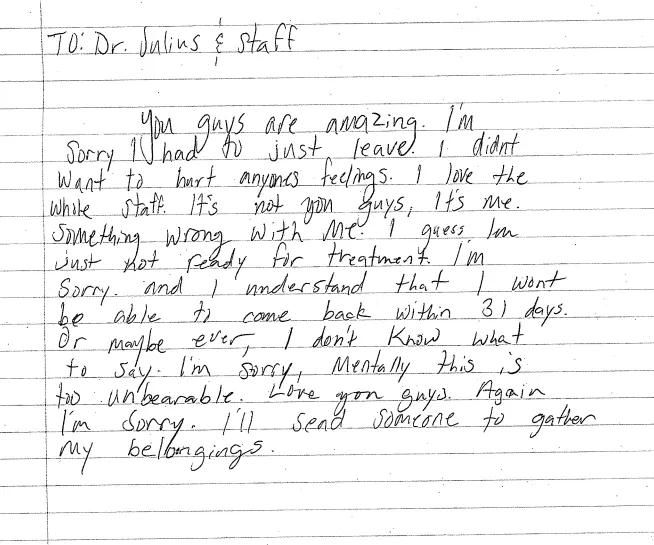 TO: Dr. Julius & Staff
You guys are amazing. I'm
Sorry I had to just leave. I didnt
want to hurt anyones feelings. I love the
whole staff. It's not you guys, It's me.
Something wrong with Me. I guess Im
just not ready for treatment. I'm
Sorry. and I understand that I wont
be able to come back within 31 days.
Or maybe ever, I don't know what
to say. I'm sorry, Mentally this is
too unbearable. Love you guys. Again
I'm Sorry. I'll send someone to gather
My belongings.